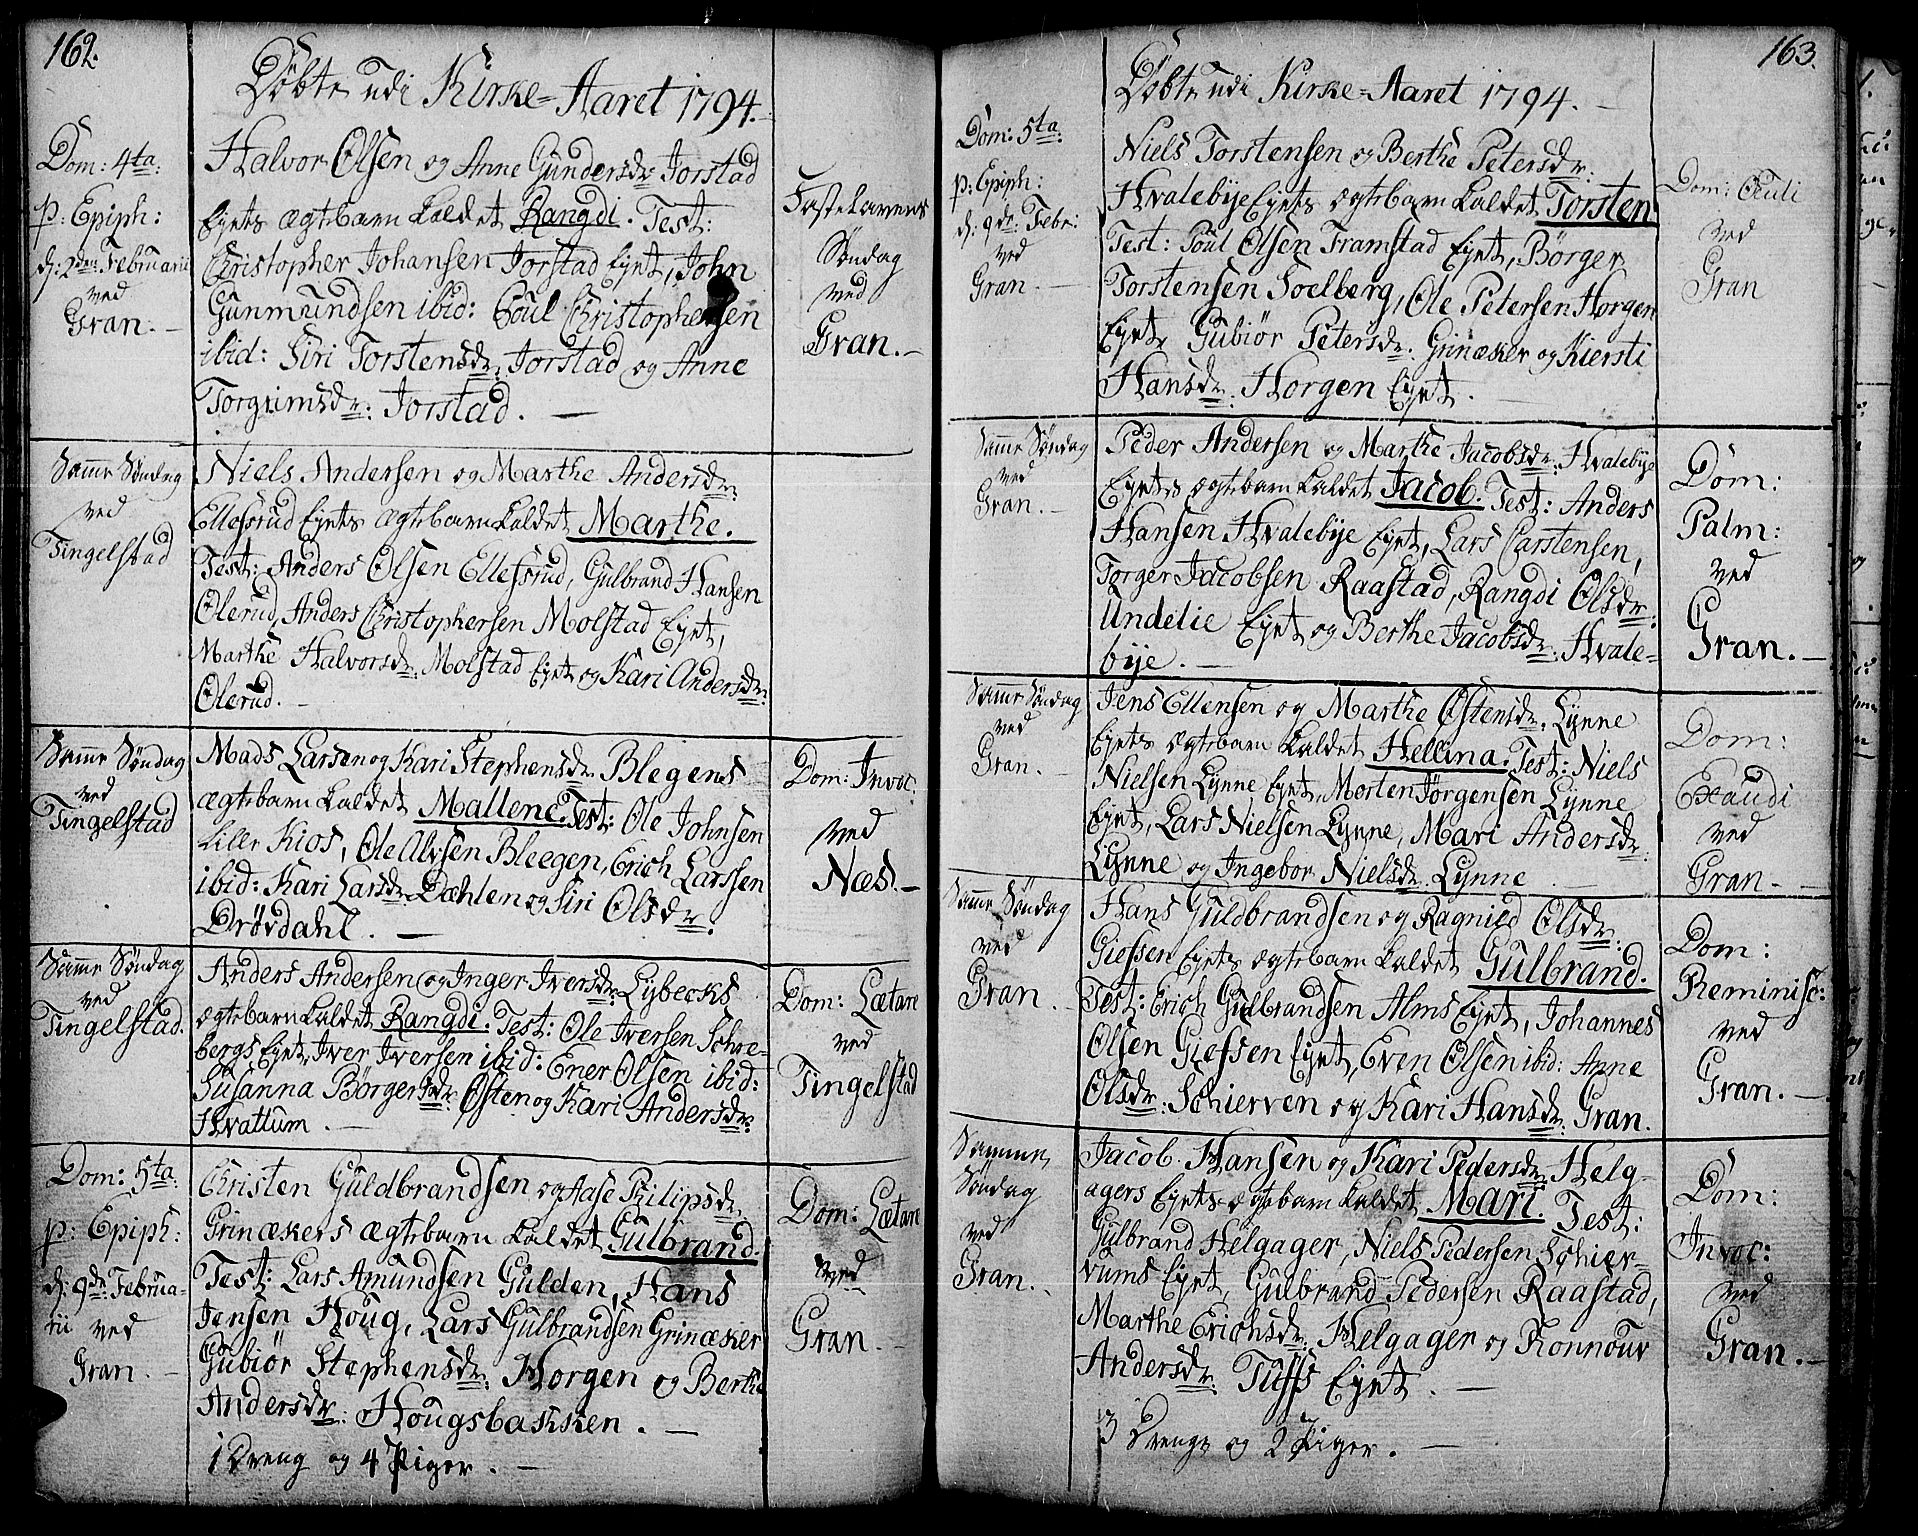 162.
Døbte udi Kirke-Aaret 1794.
Dom: 4ta:
p: Epiph:
d: 2den Februarii
ved
Gran.
Halvor Olsen og Anne Gundersdr: Jorstad
Eyets ægtebarn kaldet Rangdi. Test:
Christopher Johansen Jorstad Eyet, John
Gunmundsen ibid: Poul Christophersen
ibid: Siri Torstensdr: Jorstad og Anne
Torgrimsdr: Jorstad.
Fastelavens
Søndag
ved
Gran.
Samme Søndag
ved
Tingelstad
Niels Andersen og Marthe Andersdr:
Ellefsrud Eyets ægtebarn kaldet Marthe.
Test: Anders Olsen Ellefsrud, Gulbrand Hansen
Olerud, Anders Christophersen Molstad Eyet,
Marthe Halvorsdr: Molstad Eyet og Kari Andersdr:
Olerud.
Samme Søndag
ved
Tingelstad
Mads Larsen og Kari Stephensdr: Blegens
ægtebarn kaldet Mallene. Test: Ole Johnsen
Lille Kios, Ole Alvsen Bleegen, Erich Larssen
ibid: Kari Larsdr: Dæhlen og Siri Olsdr:
Drövdahl.
Dom: Invoc:
ved
Næs.
Samme Søndag
ved
Tingelstad.
Anders Andersen og Inger Iversdr: Lybecks
ægtebarn kaldet Rangdi. Test: Ole Iversen Schre-
bergs Eyet, Iver Iversen ibid: Ener Olsen ibid:
Susanna Börgersdr: Østen og Kari Andersdr:
Hvattum.
Dom: Lætare
ved
Tingelstad
Dom: 5ta
p: Epiph:
d: 9de Februa-
rii ved
Gran.
Christen Guldbrandsen og Aase Philipsdr:
Grinækers ægtebarn kaldet Gulbrand.
Test: Lars Amundsen Gulden, Hans
Jensen Houg, Lars Gulbrandsen Grinæker
Gubiör Stephensdr: Horgen og Berthe
Andersdr: Hougsbakken.
Dom: Lætare
ved
Gran.
1 Dreng og 4 Piger.
163.
Døbte udi Kirke-Aaret 1794.
Dom: 5ta:
p: Epiph:
d: 9de Febr:
ved
Gran.
Niels Torstensen og Berthe Petersdr:
Hvalebye Eyets ægtebarn kaldet Torsten
Test: Poul Olsen Framstad Eyet, Börger
Torstensen Soelberg, Ole Petersen Horgen
Eyet, Gubiör Petersdr: Grinæker og Kiersti
Hansdr: Horgen Eyet.
Dom: Oculi
ved
Gran
Samme Søndag
ved
Gran.
Peder Andersen og Marthe Jacobsdr: Hvalebye
Eyets ægtebarn kaldet Jacob. Test: Anders
Hansen Hvalebye Eyet, Lars Carstensen,
Torger Jacobsen Raastad, Rangdi Olsdr:
Undelie Eyet og Berthe Jacobsdr: Hvale-
bye.
Dom:
Palm:
ved
Gran.
Samme Søndag
ved
Gran.
Jens Ellensen og Marthe Østensdr: Lynne
Eyets ægtebarn kaldet Hellina. Test: Niels
Nielsen Lynne Eyet, Morten Jörgensen Lynne
Eyet, Lars Nielsen Lynne, Mari Andersdr:
Lynne og Ingebor Nielsdr: Lynne
Dom:
Exaudi
ved
Gran.
Samme Søndag
ved
Gran.
Hans Guldbrandsen og Ragnild Olsdr:
Giefsen Eyets ægtebarn kaldet Gulbrand.
Test: Erich Gulbrandsen Alms Eyet, Johannes
Olsen Giefsen Eyet, Even Olsen ibid: Anne
Olsdr: Schierven og Kari Hansdr: Gran.
Dom:
Reminisc:
ved
Gran.
Samme
Søndag
ved
Gran.
Jacob Hansen og Kari Pedersdr: Helg-
agers Eyets ægtebarn kaldet Mari. Test:
Gulbrand Helgager, Niels Pedersen Schier-
vums Eyet, Gulbrand Pedersen Raastad,
Marthe Erichsdr: Helgager og Ronnour
Andersdr: Tufs Eyet.
Dom:
Invoc:
ved
Gran.
3 Drenge og 2 Piger.